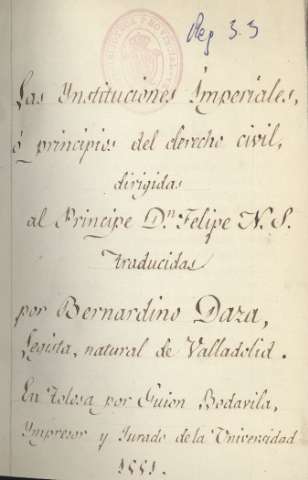 Reg 3.3
Las Ynstituciones Ymperiales,
ó principios del derecho civil,
dirigidas
al Principe D.n Felipe N. S.
Traducidas
por Bernardino Daza,
Legista, natural de Valladolid.
En Tolosa por Guion Bodavila,
Ympresor y Jurado de la Universidad
1551.